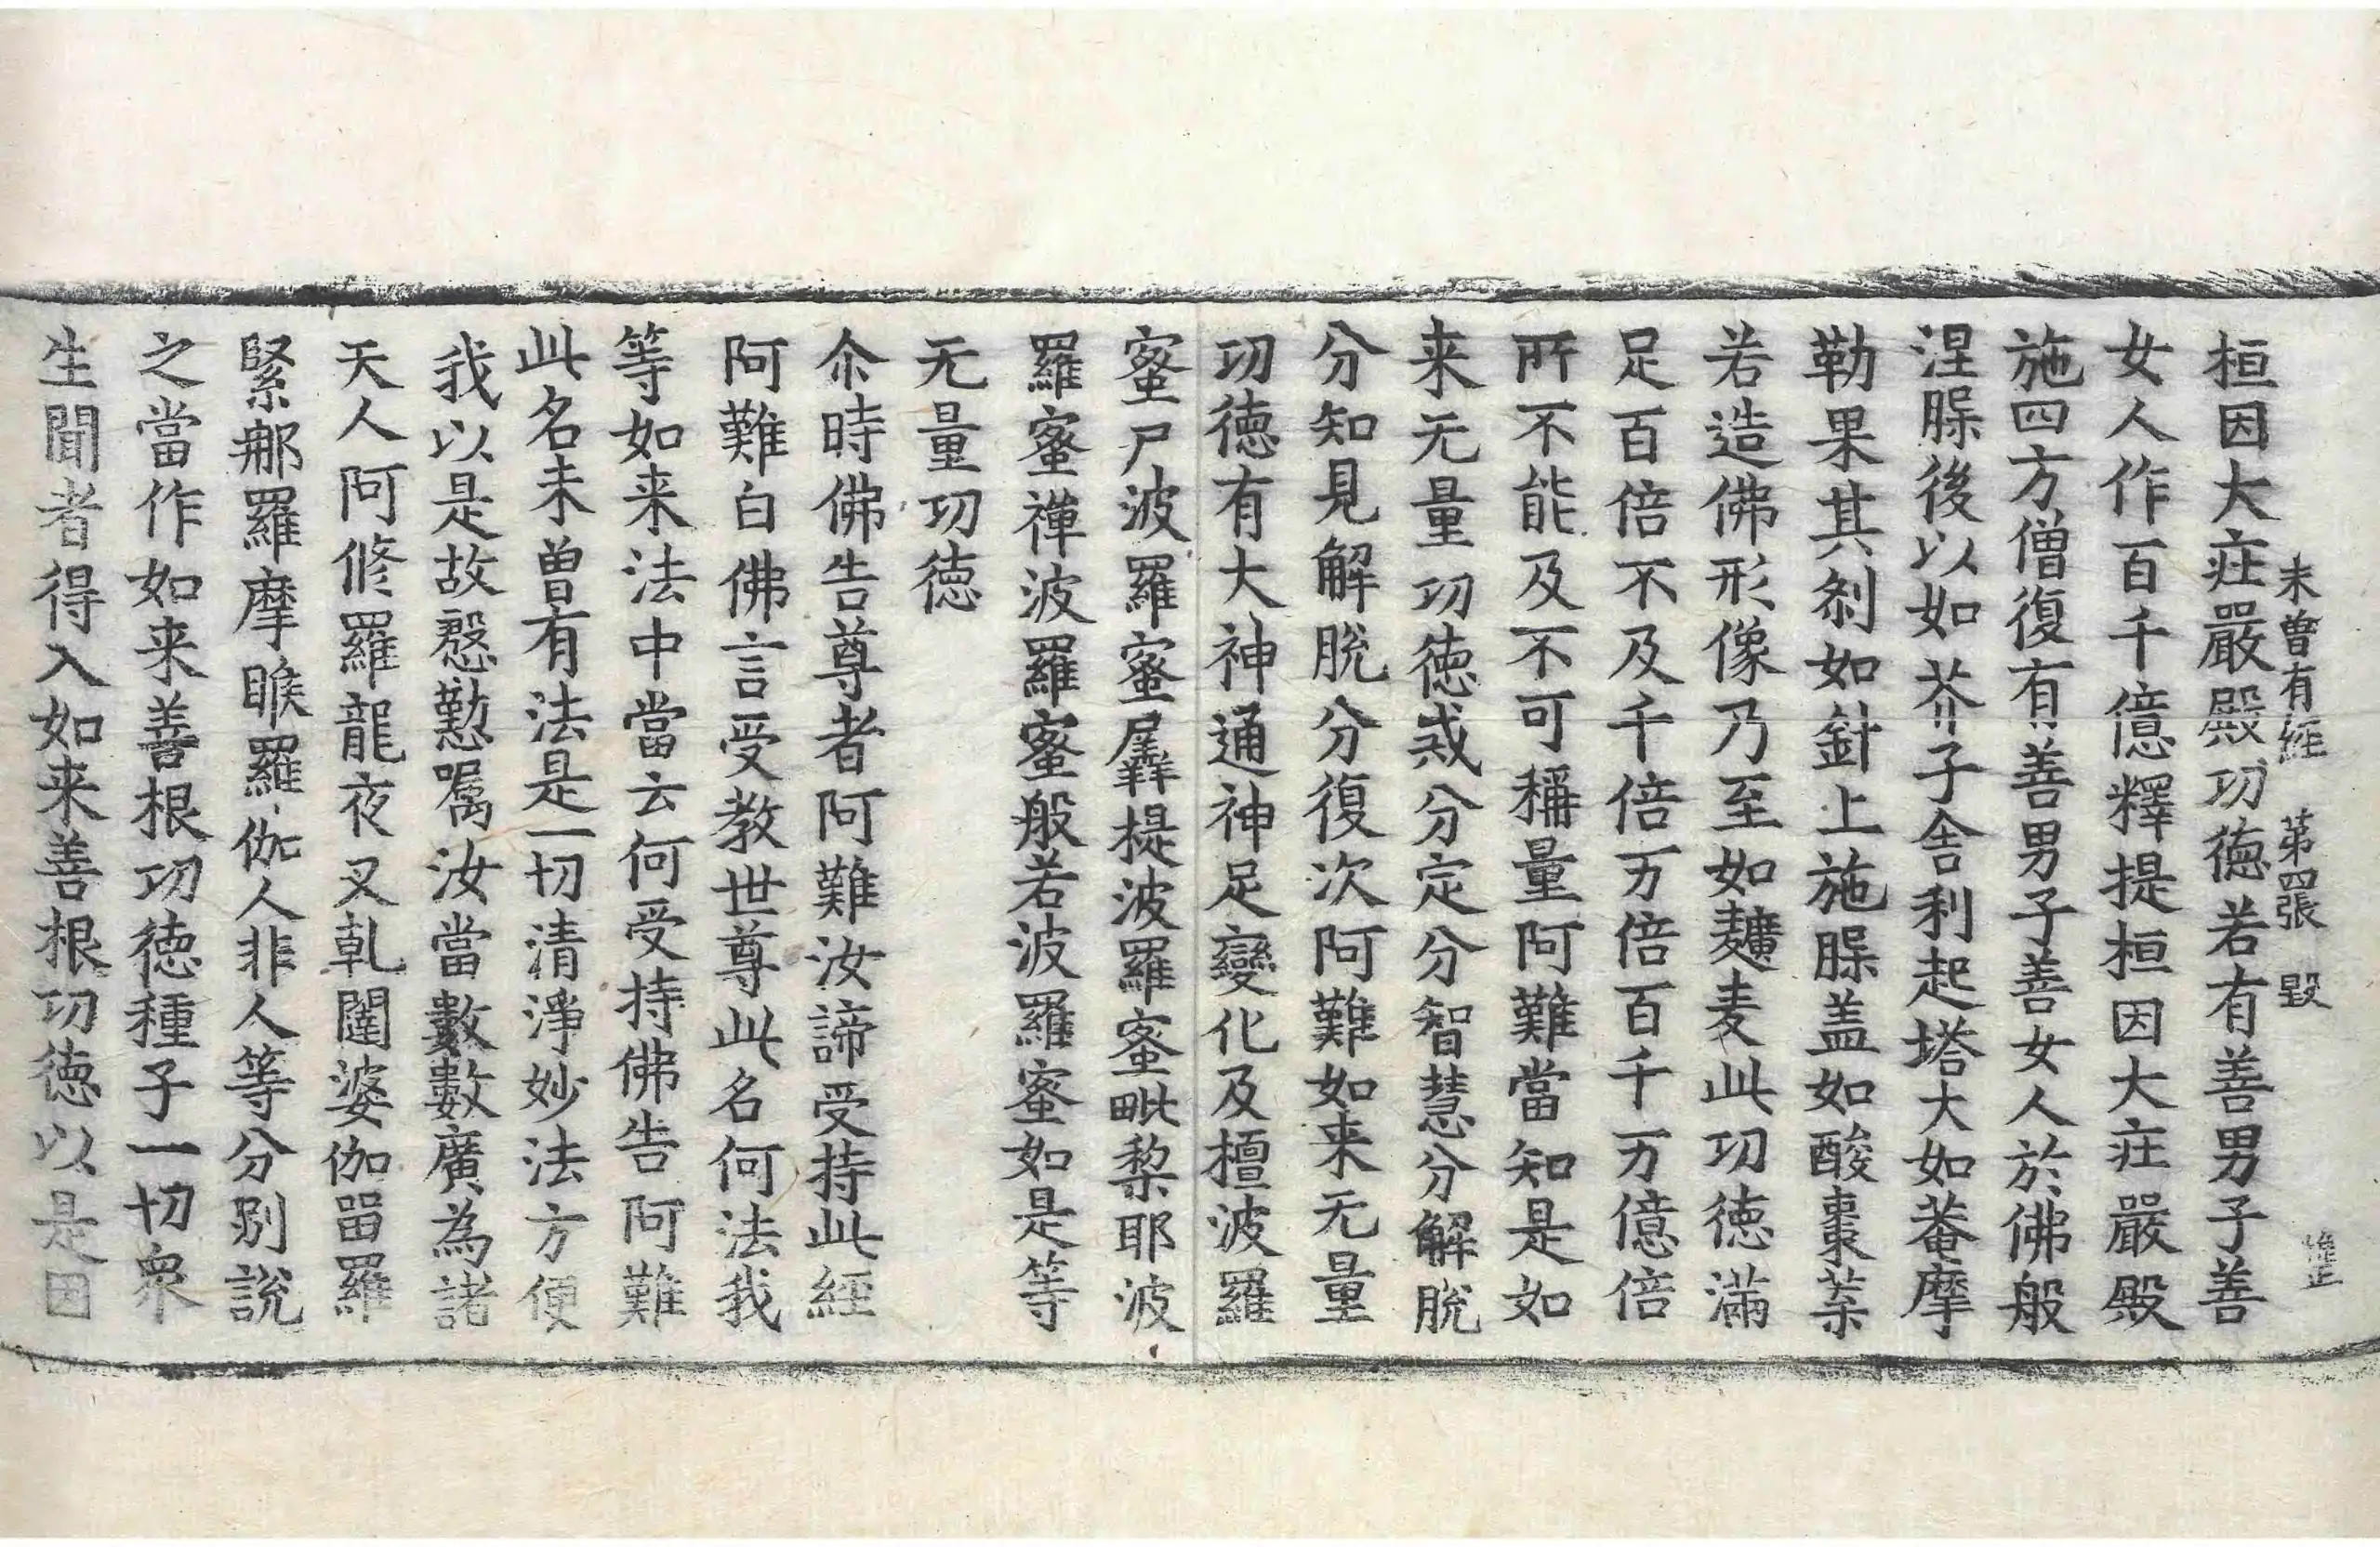 未曽有經 第四張 毀
桓因大㽵嚴殿功德若有善男子善
女人作百千億釋提桓因大㽵嚴殿
施四方僧復有善男子善女人於佛般
涅腂後以如芥子舍利起塔大如菴摩
勒果其刹如針上施腂盖如酸棗菜
若造佛形像乃至如䵃麦此功德滿
足百倍不及千倍万倍百千万億倍
所不能及不可稱量阿難當知是如
来无量功德戒分定分智慧分解脫
分知見解脫分復次阿難如来无量
功德有大神通神足變化及檀波羅
蜜尸波羅蜜羼提波羅蜜毗梨耶波
羅蜜禪波羅蜜般若波羅蜜如是等
无量功德
尒時佛告尊者阿難汝諦受持此經
阿難白佛言受教世尊此名何法我
等如来法中當云何受持佛告阿難
此名未曽有法是一切清淨妙法方便
我以是故慇懃嘱汝當數數廣為諸
天人阿修羅龍夜叉乹闥婆伽留羅
緊那羅摩睺羅伽人非人等分别說
之當作如来善根功德種子一切衆
生聞者得入如来善根功德以是因